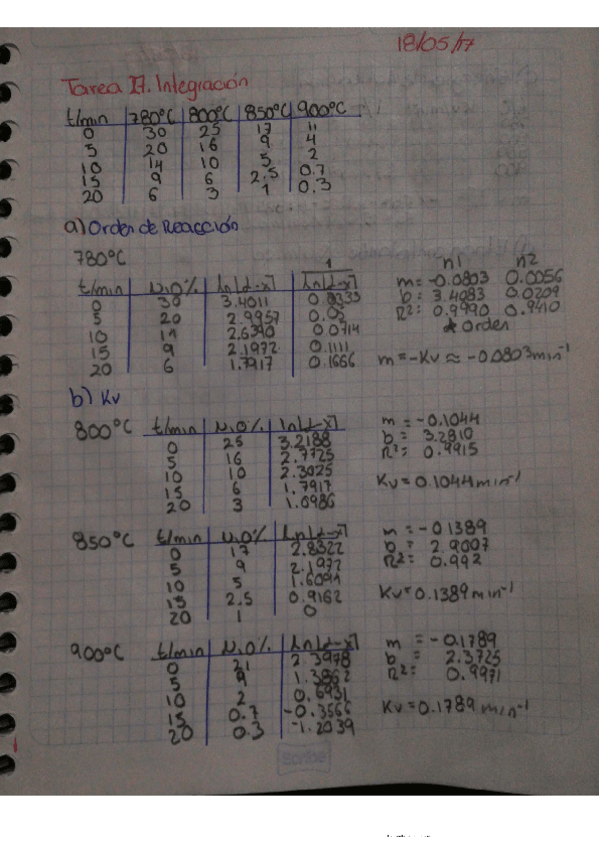 18/05/17
Tarea 17. Integración
t/min 780°C 800°C 850°C 900°C
0 30 25 17 11
5 20 16 9 4
10 14 10 5 2
15 9 6 2.5 0.7
20 6 3 1 0.3
a) Orden de Reacción
780°C
t/min N2O% ln[α-x] 1/ln[α-x]
0 30 3.4011 0.0333
5 20 2.9957 0.05
10 14 2.6390 0.0714
15 9 2.1972 0.1111
20 6 1.7917 0.1666
n1 n2
m= -0.0803 0.0056
b: 3.4083 0.0209
R²: 0.9990 0.9410
* orden
m=-Kv ≈ -0.0803min⁻¹
b) Kv
800°C t/min N2O% ln[α-x]
0 25 3.2188
5 16 2.7725
10 10 2.3025
15 6 1.7917
20 3 1.0986
m = -0.1044
b = 3.2810
R²: 0.9915
Kv=0.1044min⁻¹
850°C t/min N2O% ln[α-x]
0 17 2.8322
5 9 2.1972
10 5 1.6094
15 2.5 0.9162
20 1 0
m = -01389
b = 2.9007
R²: 0.992
Kv=0.1389min⁻¹
900°C t/min N2O% ln[α-x]
0 11 2.3978
5 4 1.3862
10 2 0.6931
15 0.7 -0.3566
20 0.3 -1.2039
m = -0.1789
b = 2.3725
R²: 0.9971
Kv=0.1789min⁻¹
Scribe